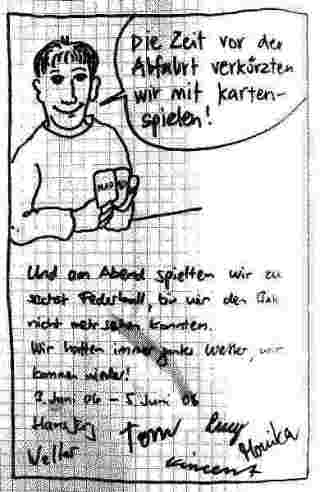 Die Zeit vor der
Abfahrt verkürzten
wir mit karten-
spielen!
Und am Abend spielten wir zu
sechst Federball, bis wir den Ball
nicht mehr sehen konnten.
Wir hatten immer gutes Wetter, wir
kommen wieder!
2. Juni 06 – 5 Juni 06
Tom Lucy Monika
Vincent